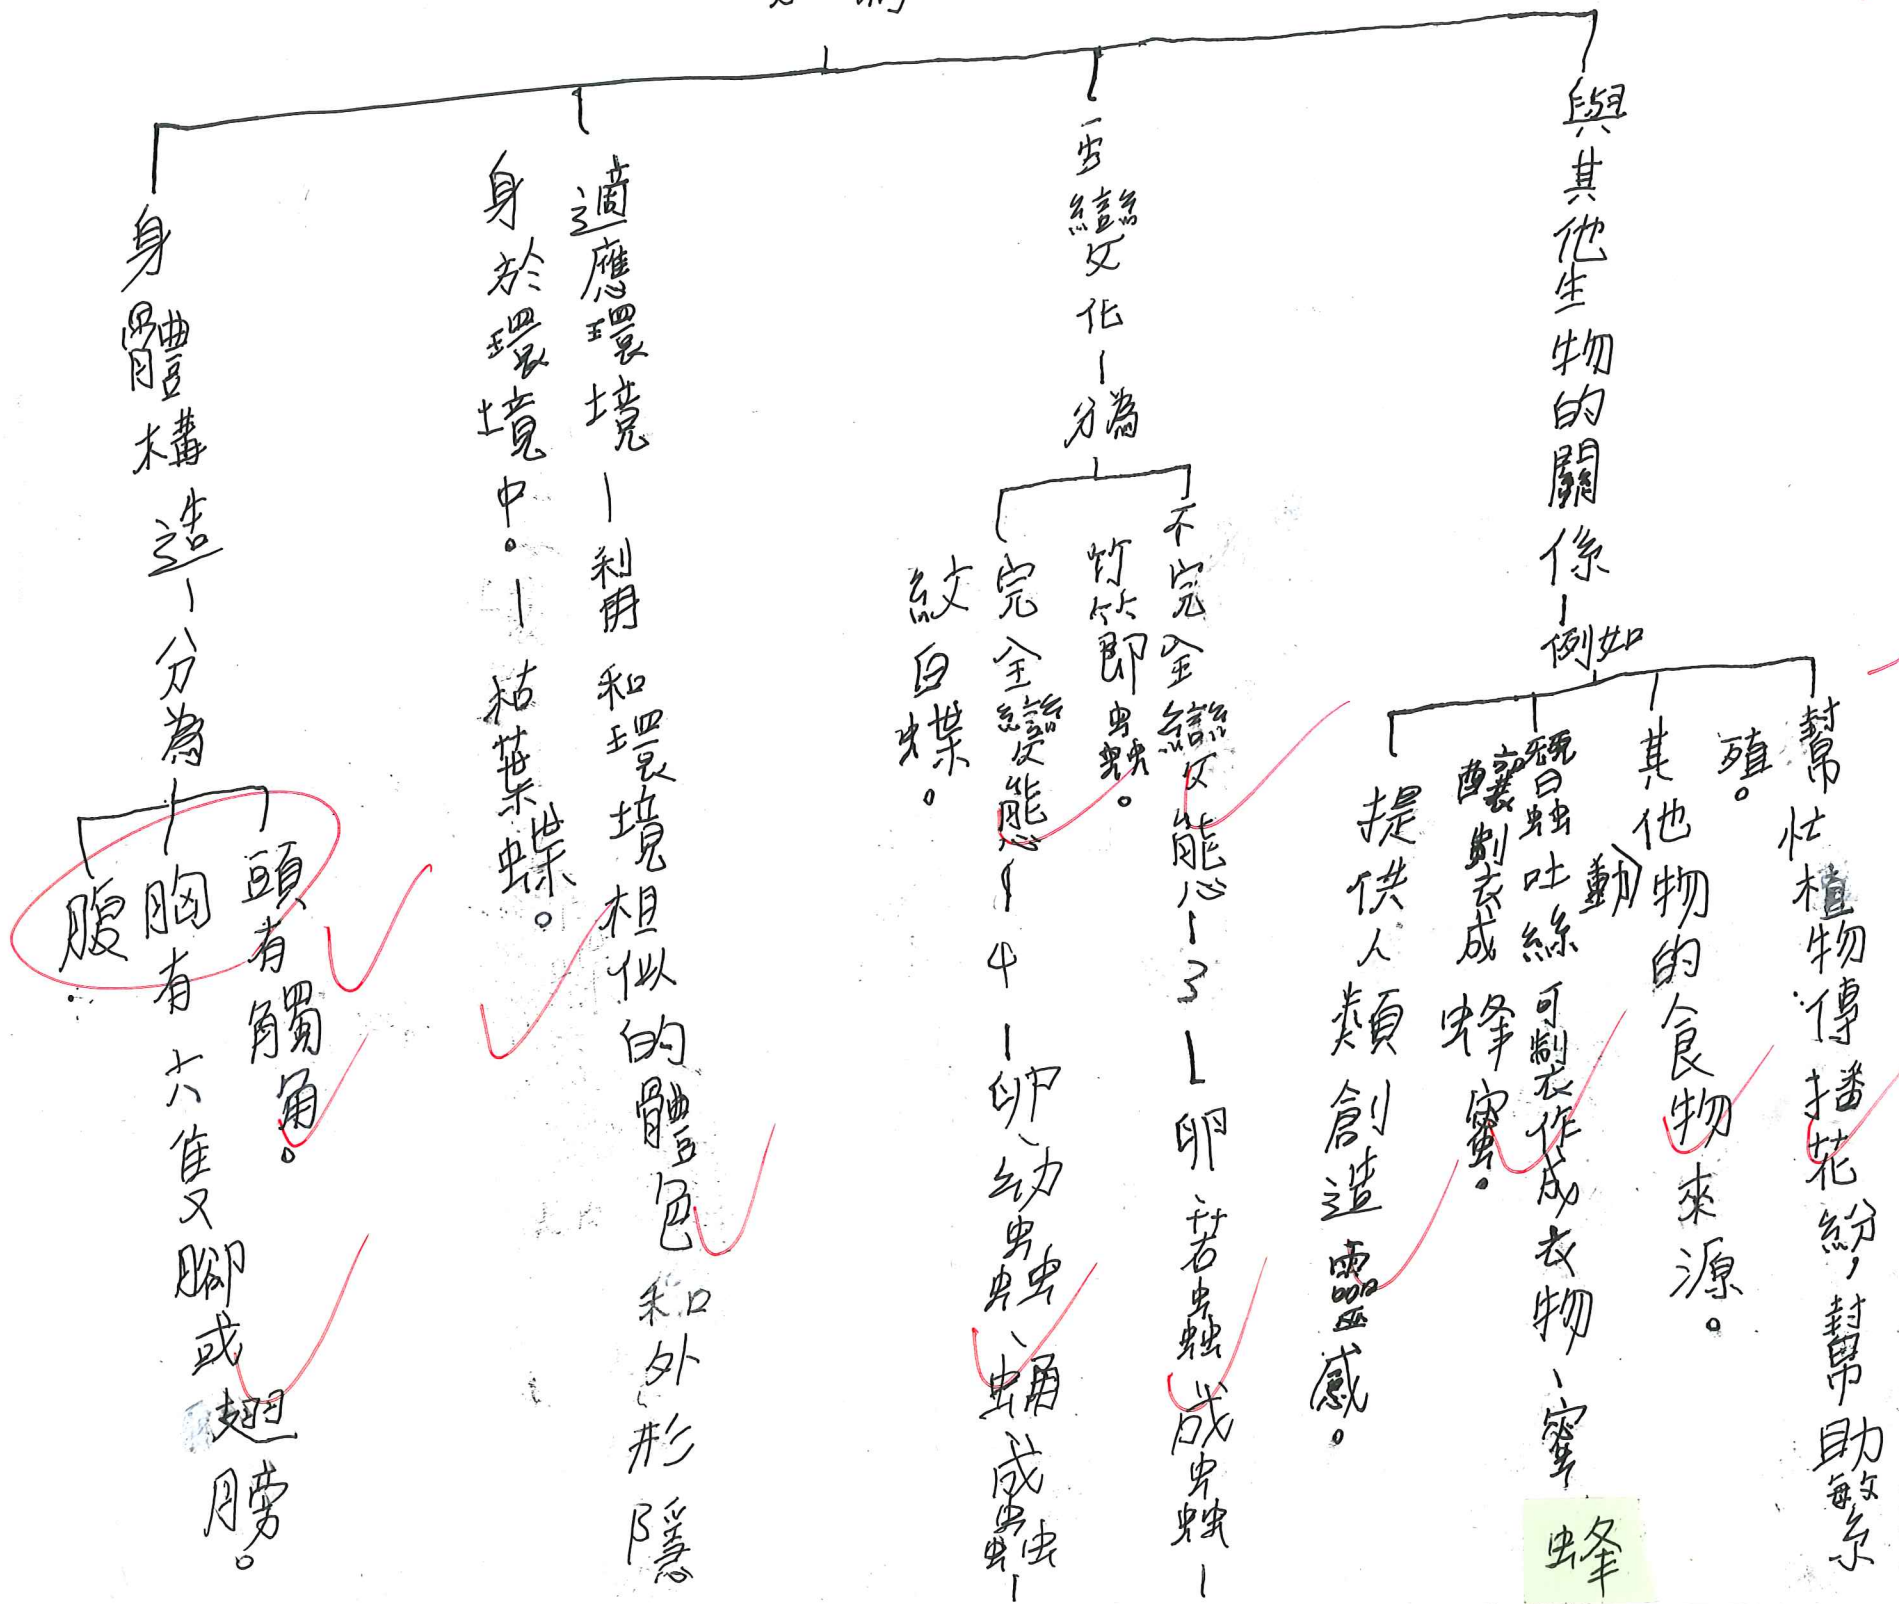 與其他生物的關係－例如
幫忙植物傳播花紛，幫助繁
殖。
其他物的食物來源。
動
蠶蟲吐絲可製作成衣物、蜜蜂
釀製成蜂蜜。
提供人類創造靈感。
變化－分為
不完全變態－3－卵若蟲成蟲－
竹節蟲。
完全變態－4－卵、幼蟲、蛹成蟲－
紋白蝶。
適應環境－利用和環境相似的體色和外形隱
身於環境中。－枯葉蝶。
身體構造－分為
頭有觸角。
胸有六隻腳或翅膀。
腹